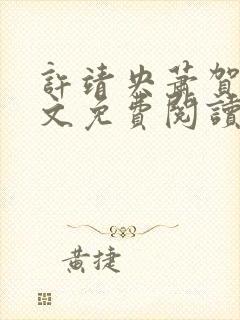 許靖央蕭賀
文免費閱讀
黃捷